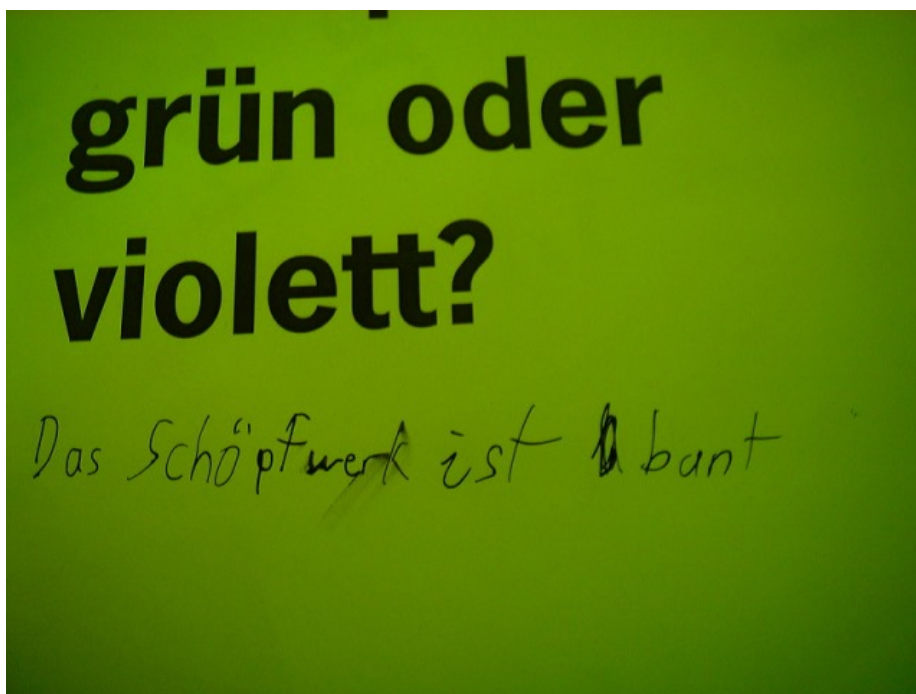 grün oder
violett?
Das Schöpfwerk ist bunt